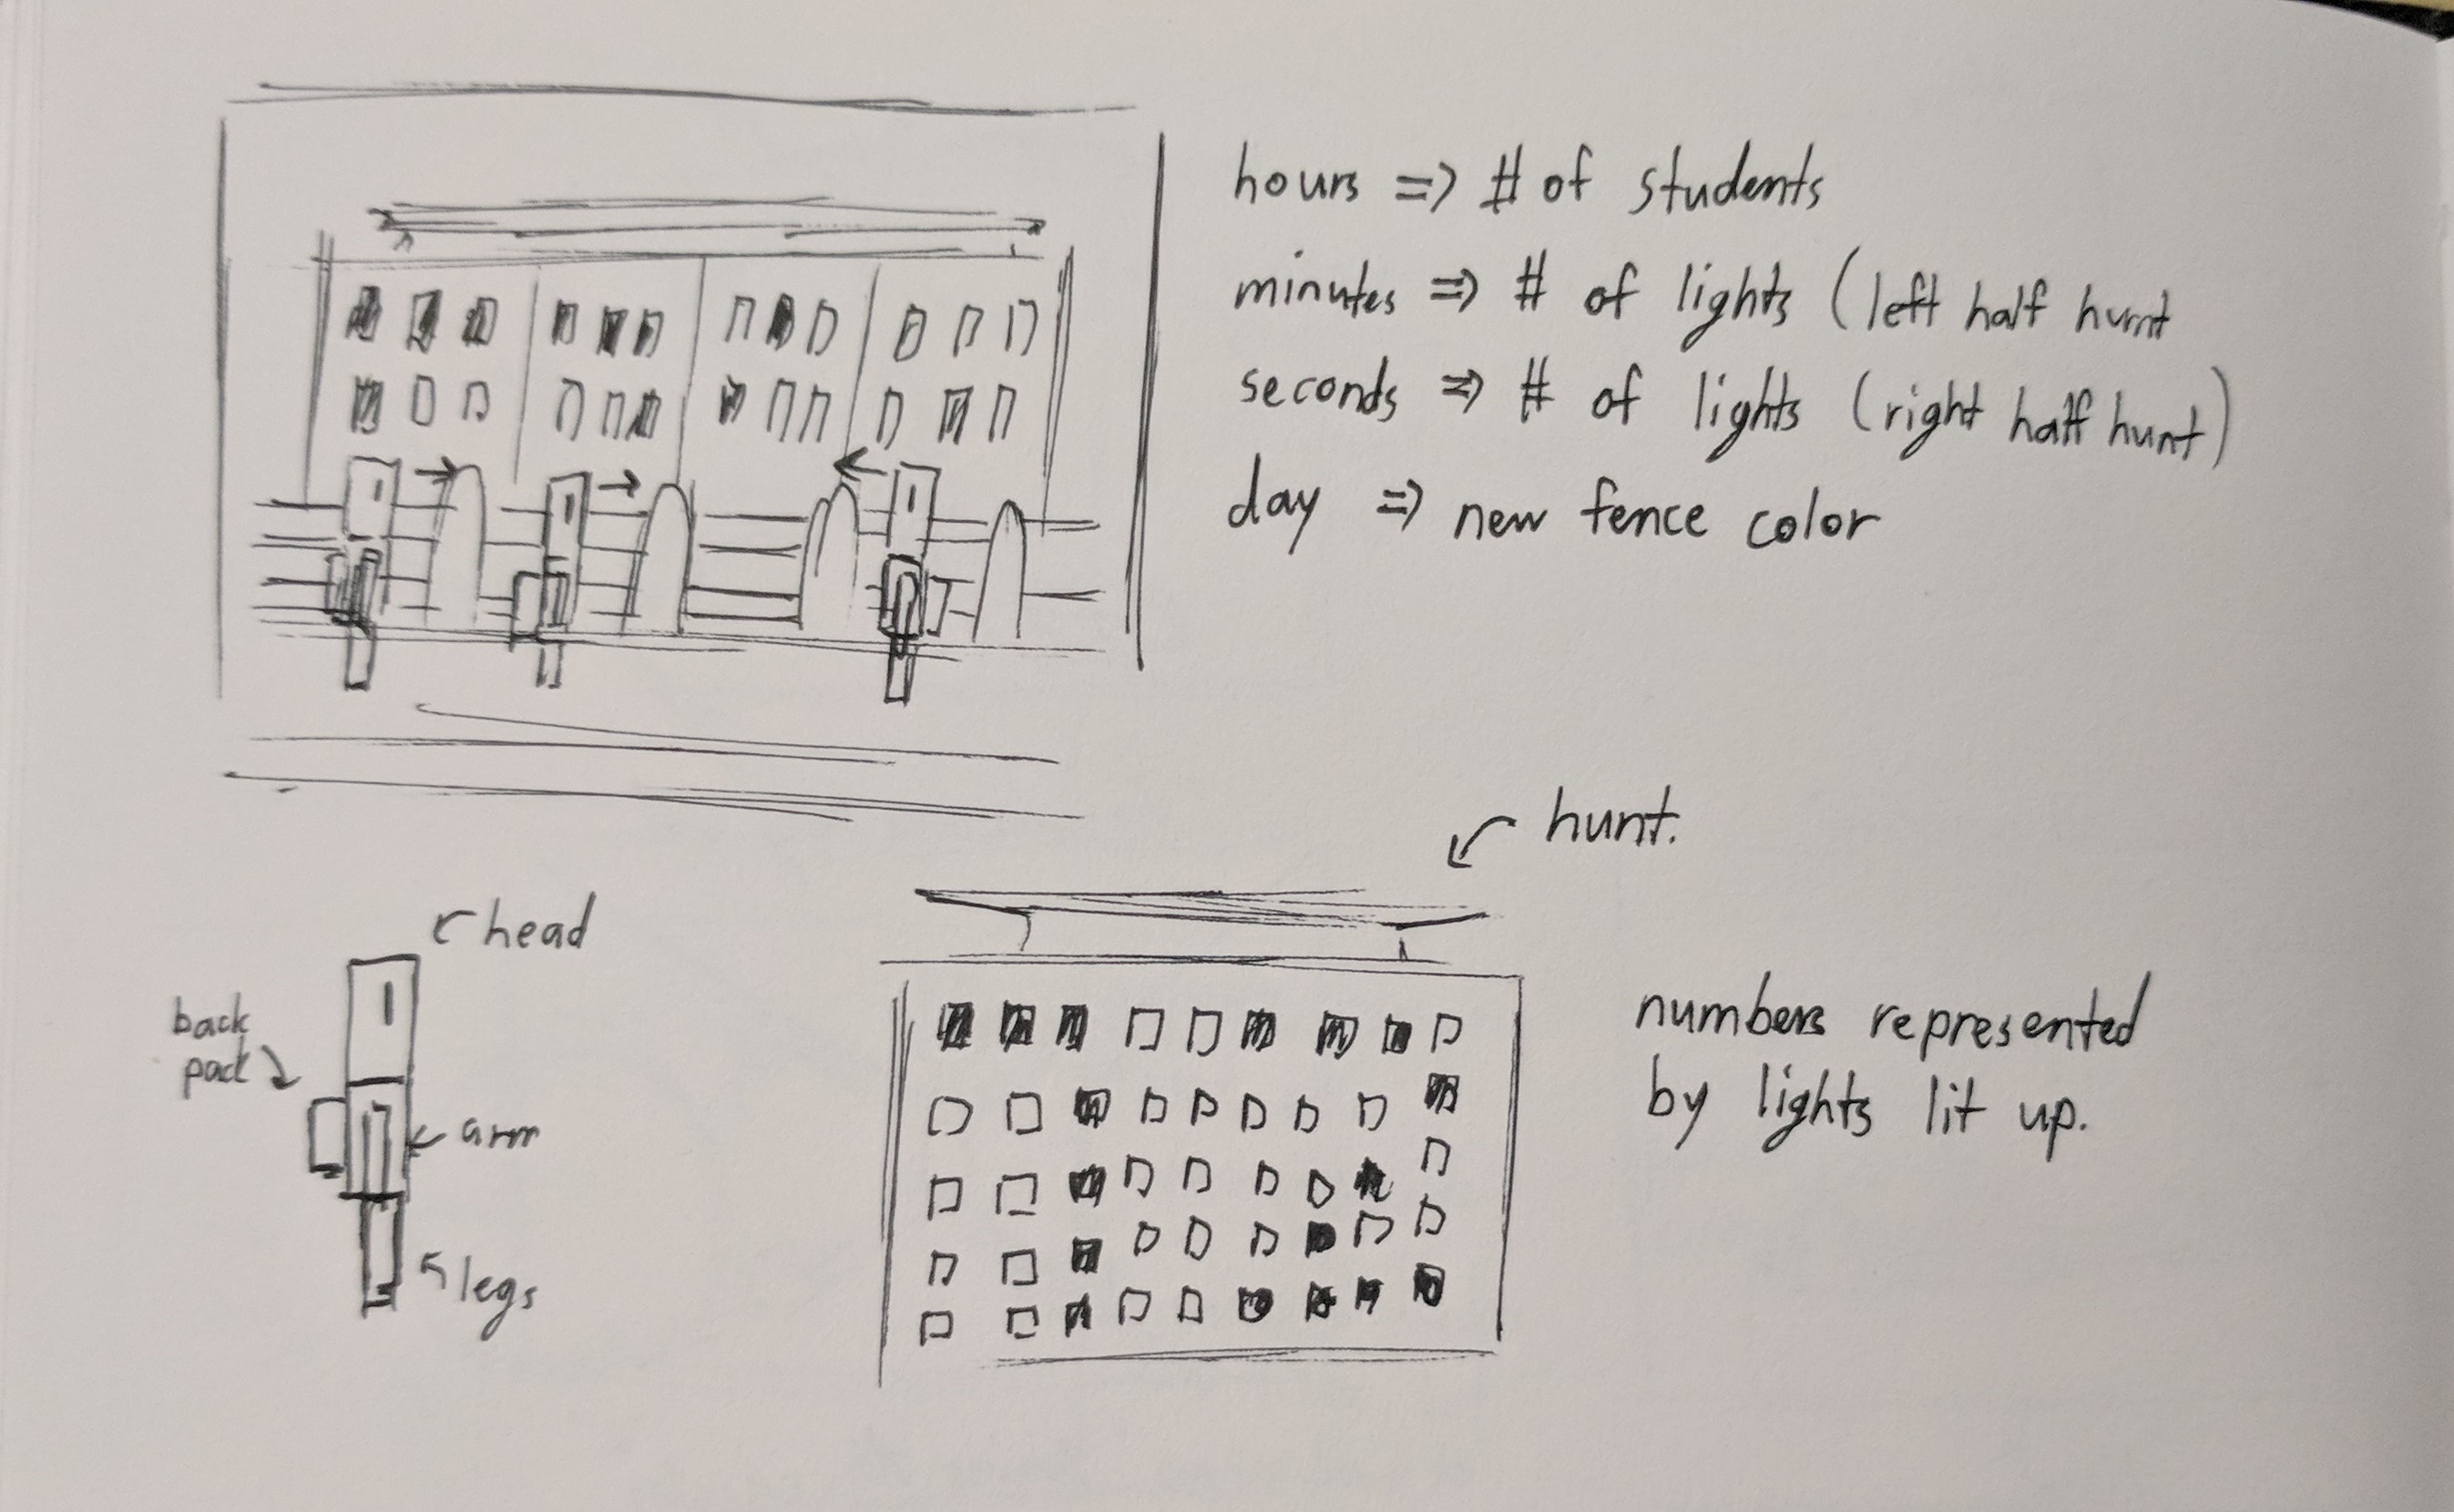 hours => # of students
minutes => # of lights (left half hunt
seconds => # of lights (right half hunt)
day => new fence color
hunt.
head
back
pack
arm
legs
numbers represented
by lights lit up.